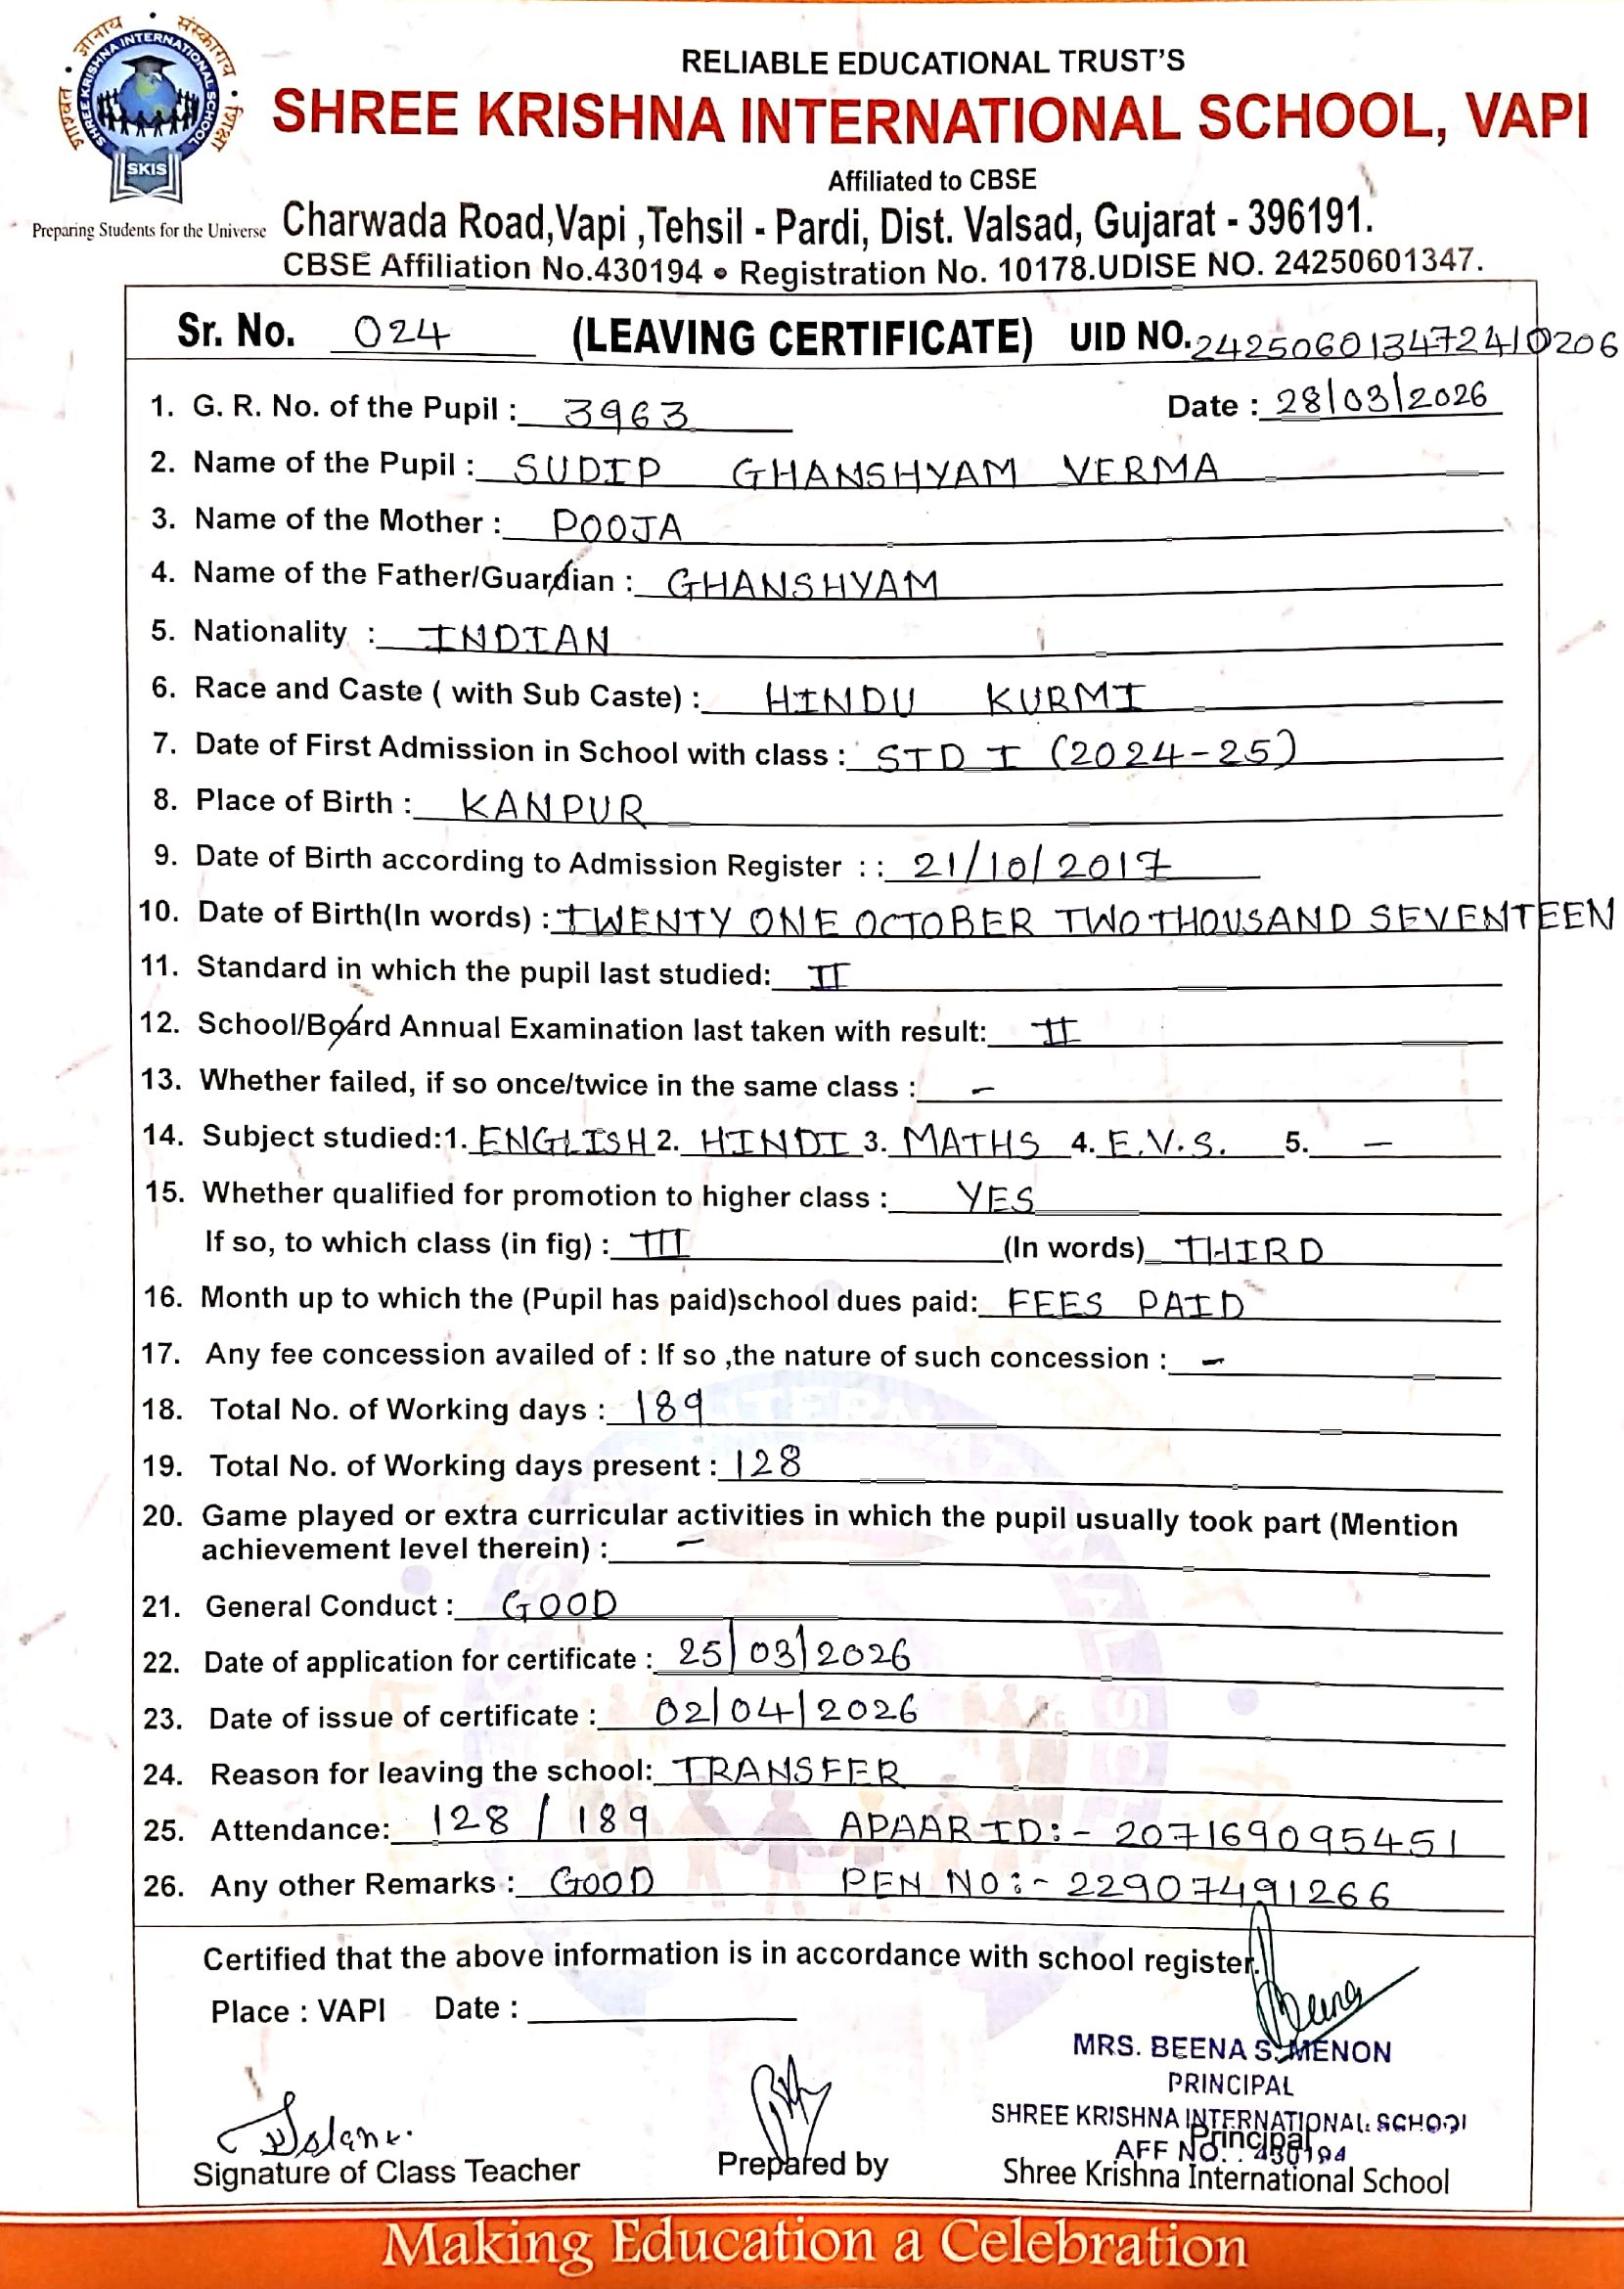 शाश्वत ज्ञानाय संस्काराय शिक्षा
SHREE KRISHNA INTERNATIONAL SCHOOL
SKIS
Preparing Students for the Universe
RELIABLE EDUCATIONAL TRUST'S
SHREE KRISHNA INTERNATIONAL SCHOOL, VAPI
Affiliated to CBSE
Charwada Road,Vapi ,Tehsil - Pardi, Dist. Valsad, Gujarat - 396191.
CBSE Affiliation No.430194 • Registration No. 10178.UDISE NO. 24250601347.
Sr. No. 024 (LEAVING CERTIFICATE) UID NO. 242506013472410206
1. G. R. No. of the Pupil : 3963 Date : 28/03/2026
2. Name of the Pupil : SUDIP GHANSHYAM VERMA
3. Name of the Mother : POOJA
4. Name of the Father/Guardian : GHANSHYAM
5. Nationality : INDIAN
6. Race and Caste ( with Sub Caste) : HINDU KURMI
7. Date of First Admission in School with class : STD I (2024-25)
8. Place of Birth : KANPUR
9. Date of Birth according to Admission Register : : 21/10/2017
10. Date of Birth(In words) : TWENTY ONE OCTOBER TWO THOUSAND SEVENTEEN
11. Standard in which the pupil last studied: II
12. School/Board Annual Examination last taken with result: II
13. Whether failed, if so once/twice in the same class : -
14. Subject studied:1. ENGLISH 2. HINDI 3. MATHS 4. E.V.S. 5. -
15. Whether qualified for promotion to higher class : YES
If so, to which class (in fig) : III (In words) THIRD
16. Month up to which the (Pupil has paid)school dues paid: FEES PAID
17. Any fee concession availed of : If so ,the nature of such concession : -
18. Total No. of Working days : 189
19. Total No. of Working days present : 128
20. Game played or extra curricular activities in which the pupil usually took part (Mention
achievement level therein) : -
21. General Conduct : GOOD
22. Date of application for certificate : 25/03/2026
23. Date of issue of certificate : 02/04/2026
24. Reason for leaving the school: TRANSFER
25. Attendance: 128 / 189 APAAR ID:- 207169095451
26. Any other Remarks : GOOD PEN NO:- 22907491266
Certified that the above information is in accordance with school register.
Place : VAPI Date :
MRS. BEENA S. MENON
PRINCIPAL
SHREE KRISHNA INTERNATIONAL SCHOOL
Principal
AFF NO. 430194
Signature of Class Teacher Prepared by Shree Krishna International School
Making Education a Celebration